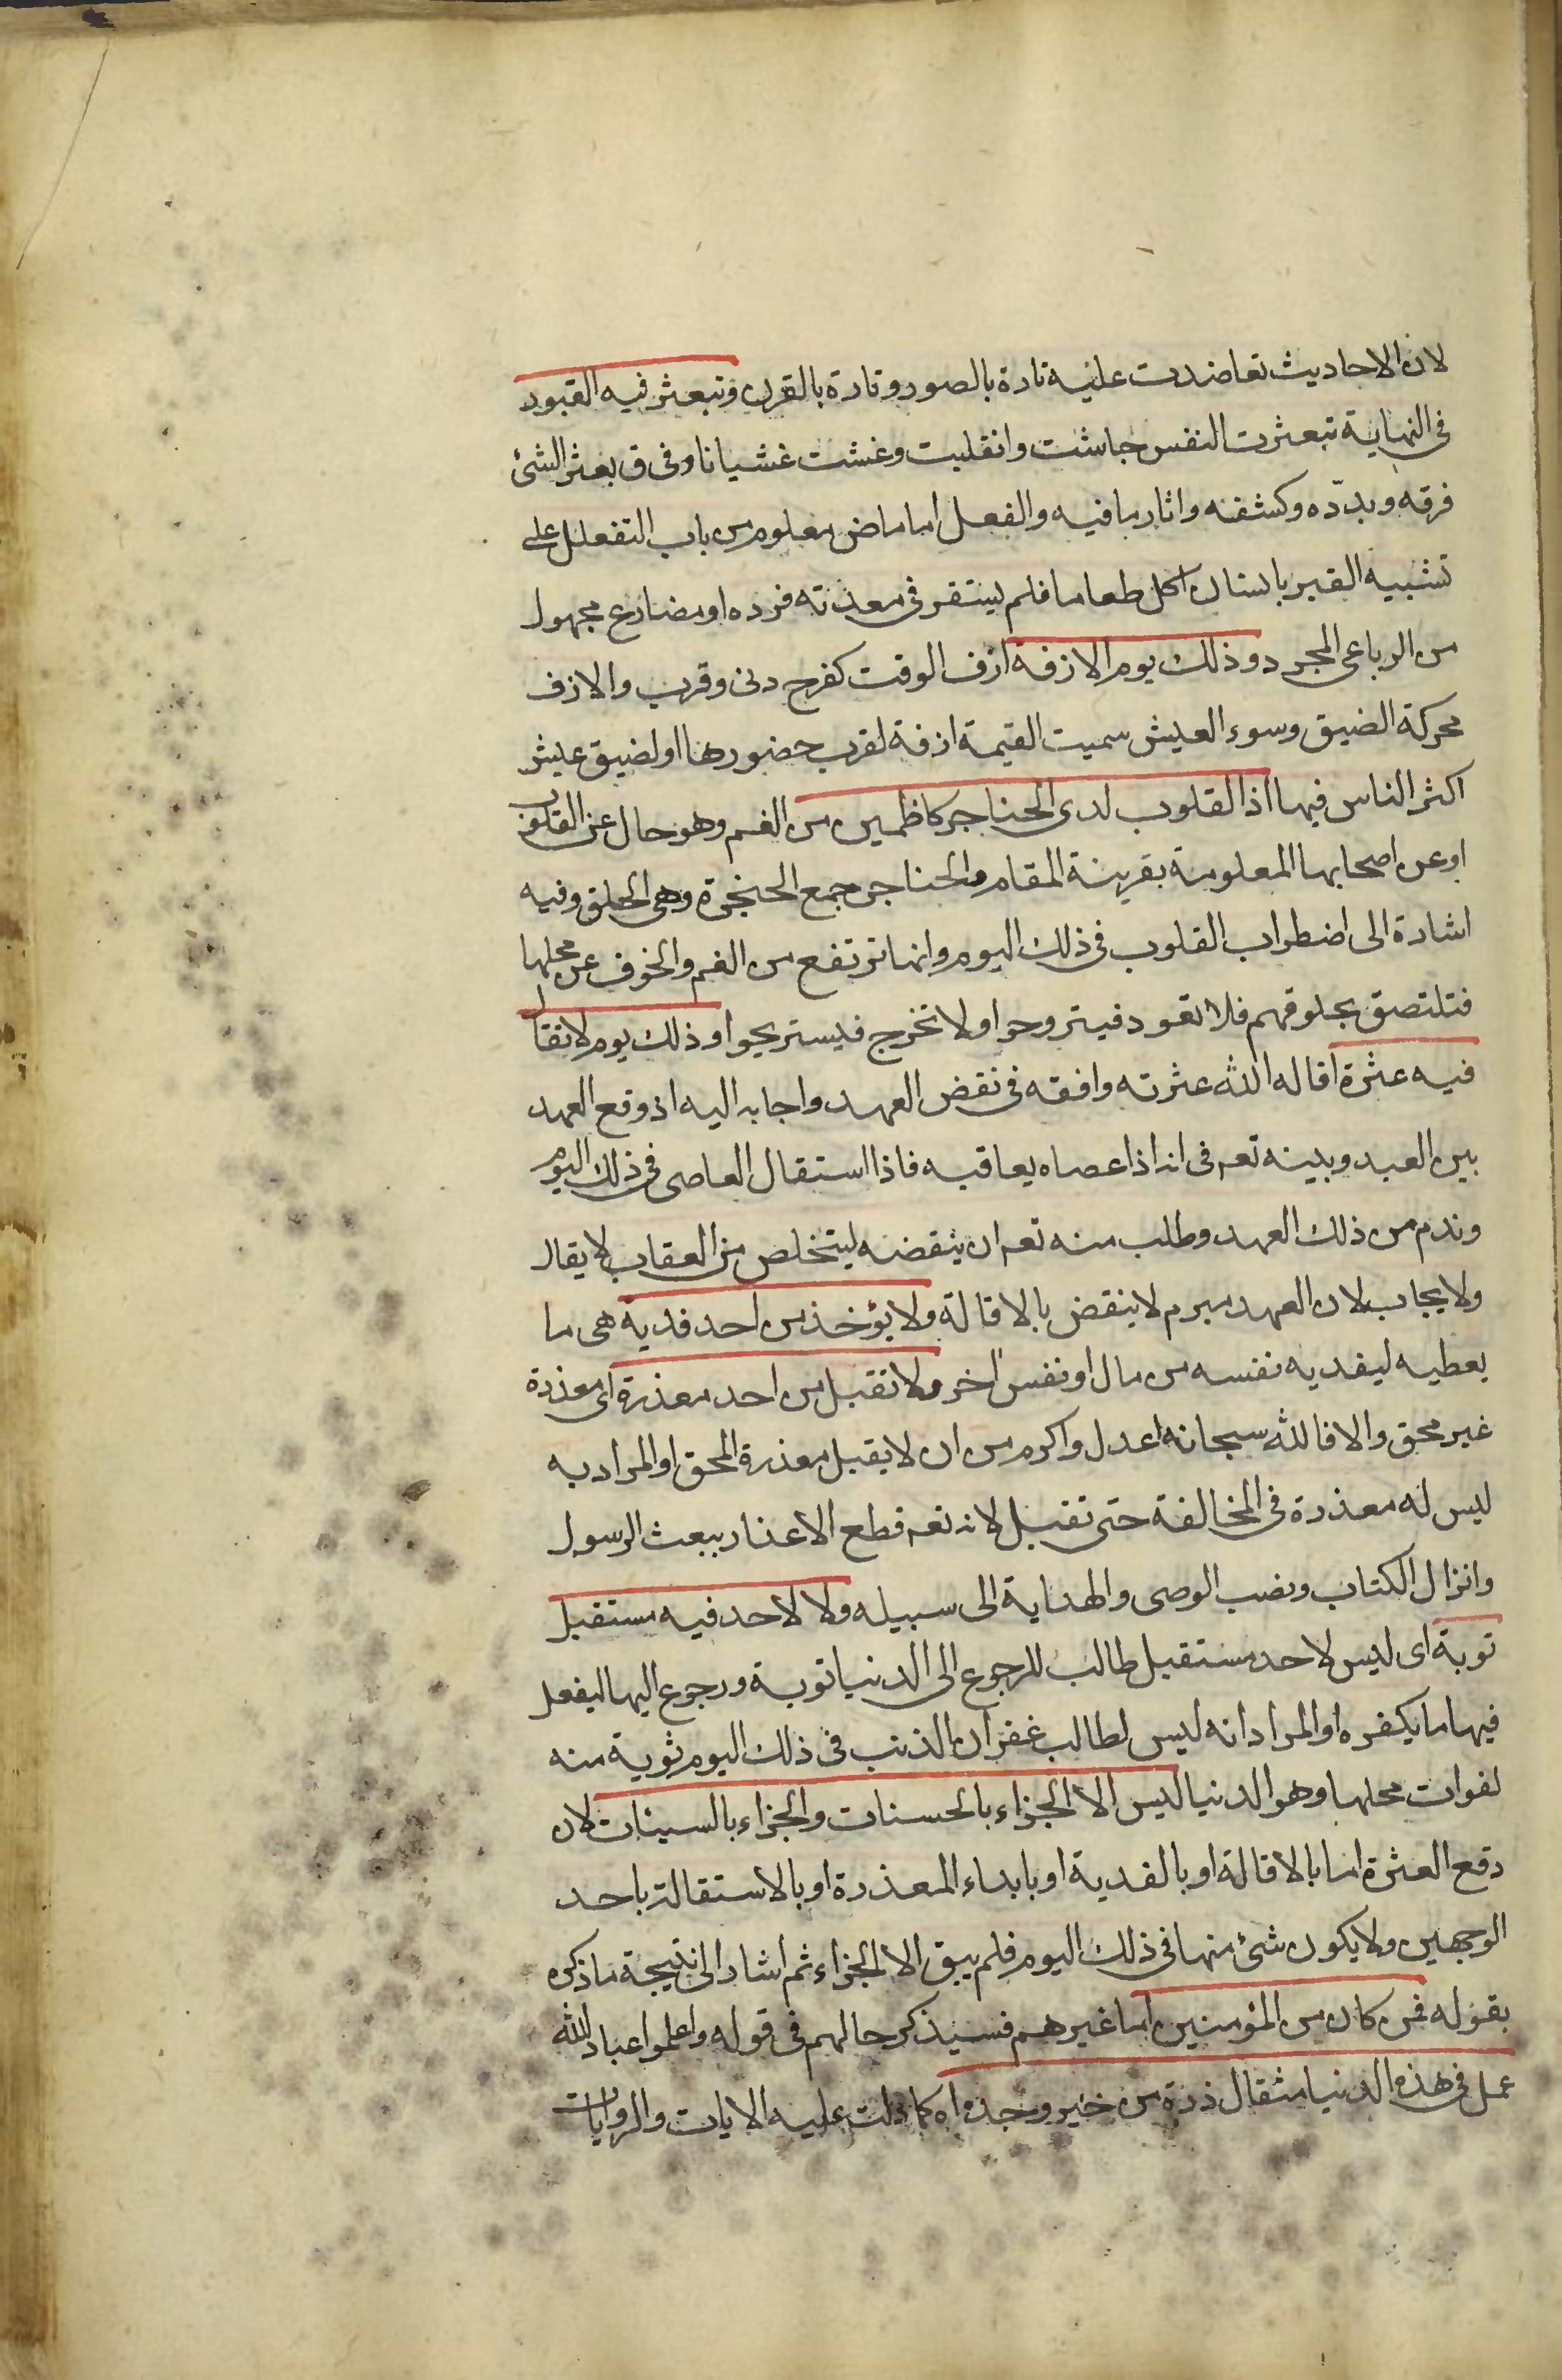 لان الاحاديث تعاضدت عليه تارة بالصور وتارة بالقرن وتبعثر فيه القبور
فى النهاية تبعثرت النفس جاشت وانقلبت وغشت غشيانا وفى ق بعثر الشئ
فرقه وبدّده وكشفه واثار ما فيه والفعل اما ماض معلوم من باب التفعلل على
تشبيه القبر بانسان اكل طعاما فلم يستقر فى معدته فرده او مضارع مجهول
من الرباعى المجرد وذلك يوم الازفة ازف الوقت كفرح دنى وقرب والازف
محركة الضيق وسوء العيش سميت القيمة ازفة لقرب حضورها او لضيق عيش
اكثر الناس فيها اذ القلوب لدى الحناجر كاظمين من الغم وهو حال عن القلوب
او عن اصحابها المعلومة بقرينة المقام والحناجر جمع الحنجرة وهى الحلق وفيه
اشارة الى اضطراب القلوب فى ذلك اليوم وانها ترتفع من الغم والخوف عن محلها
فتلتصق بحلوقهم فلا تعود فيتروحوا ولا تخرج فيستريحوا وذلك يوم لا تقال
فيه عثرة اقاله الله عثرته وافقه فى نقض العهد واجابه اليه اذ وقع العهد
بين العبد وبينه تعه فى انه اذا عصاه يعاقبه فاذا استقال العاصى فى ذلك اليوم
وندم من ذلك العهد وطلب منه تعه ان ينقضه ليتخلص من العقاب لا يقال
ولا يجاب لان العهد مبرم لا ينقض بالاقالة ولا يؤخذ من احد فدية هى ما
يعطيه ليفديه نفسه من مال او نفس اخر ولا تقبل من احد معذرة اى معذرة
غير محق والا فالله سبحانه اعدل واكرم من ان لا يقبل معذرة المحق او المراد به
ليس له معذرة فى المخالفة حتى تقبل لانه تعه قطع الاعذار ببعث الرسول
وانزال الكتاب ونصب الوصى والهداية الى سبيله ولا لاحد فيه مستقبل
توبة اى ليس لاحد مستقبل طالب للرجوع الى الدنيا توبة ورجوع اليها ليفعل
فيها ما يكفره او المراد انه ليس لطالب غفران الذنب فى ذلك اليوم توبة منه
لفوات محلها وهو الدنيا ليس الا الجزاء بالحسنات والجزاء بالسيئات لان
دفع العثرة اما بالاقالة او بالفدية او بابداء المعذرة او بالاستقالة باحد
الوجهين ولا يكون شئ منها فى ذلك اليوم فلم يبق الا الجزاء ثم اشار الى نتيجة ما ذكره
بقوله فمن كان من المؤمنين اما غيرهم فسيذكر حالهم فى قوله واعلموا عباد الله
عمل فى هذه الدنيا مثقال ذرة من خير وجده اه كما دلت عليه الايات والروايات